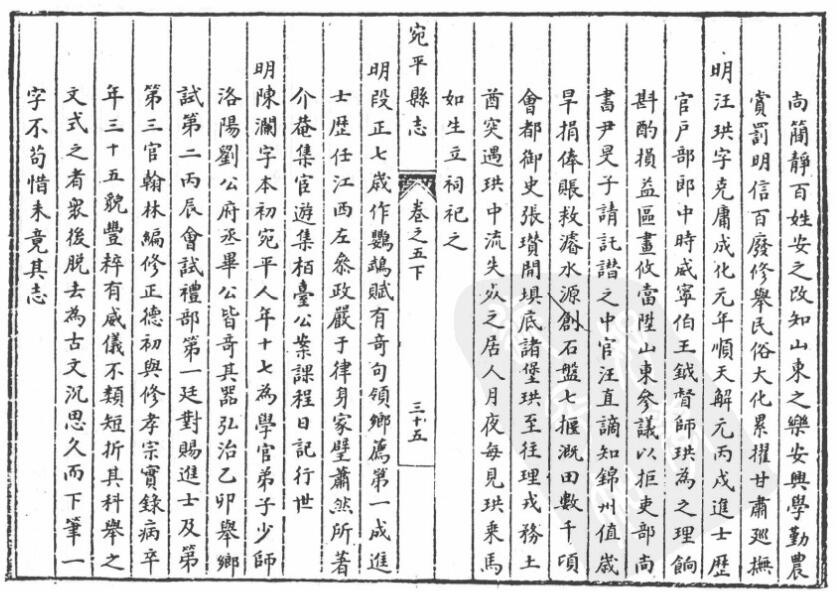 尚簡靜百姓安之改知山東之樂安興學勤農
賞罰明信百廢修舉民俗大化累擢甘肅廵撫
明汪珙字克庸成化元年順天解元丙戌進士歷
官戶部郎中時威寧伯王鉞督師珙為之理餉
斟酌損益區畫攸當陞山東參議以拒吏部尚
書尹旻子請託譛之中官汪直謫知錦州值歲
旱捐俸賑救濬水源創石盤七捱溉田數千頃
會都御史張瓚開埧底諸堡珙至往理戎務土
酋突遇珙中流矢𣦸之居人月夜每見珙乘馬
如生立祠祀之
宛平縣志 卷之五下 三十五
明段正七歲作鸚鵡賦有奇句領鄉薦第一成進
士歷任江西左叅政嚴于律身家壁蕭然所著
介菴集宦遊集栢臺公案課程日記行世
明陳瀾字本初宛平人年十七為學官弟子少師
洛陽劉公府丞畢公皆奇其器弘治乙卯舉鄉
試第二丙辰會試禮部第一廷對賜進士及第
第三官翰林編修正德初與修孝宗實錄病卒
年三十五貌豐粹有威儀不類短折其科舉之
文式之者衆後脫去為古文沉思久而下筆一
字不苟惜未竟其志